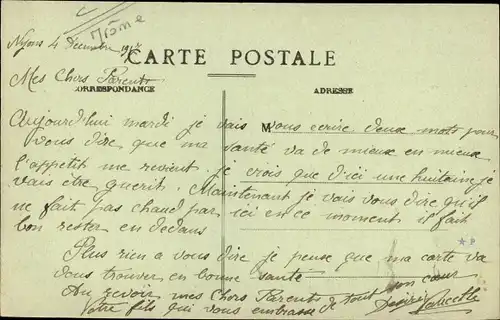 Drôme
Nyons 4 Décembre 1917
CARTE POSTALE
Mes Chers Parents
CORRESPONDANCE
ADRESSE
M
Aujourd'hui mardi je vais vous ecrire deux mots pour
vous dire que ma santé va de mieux en mieux
l'appetit me revient. je crois que d'ici une huitaine je
vais être guerit. Maintenant je vais vous dire qu'il
ne fait pas chaud par ici en ce moment il fait
bon rester en dedans
Plus rien a vous dire je pense que ma carte va
vous trouver en bonne santé
Au revoir mes Chers Parents
Votre fils qui vous embrasse de tout son cœur
Desiré